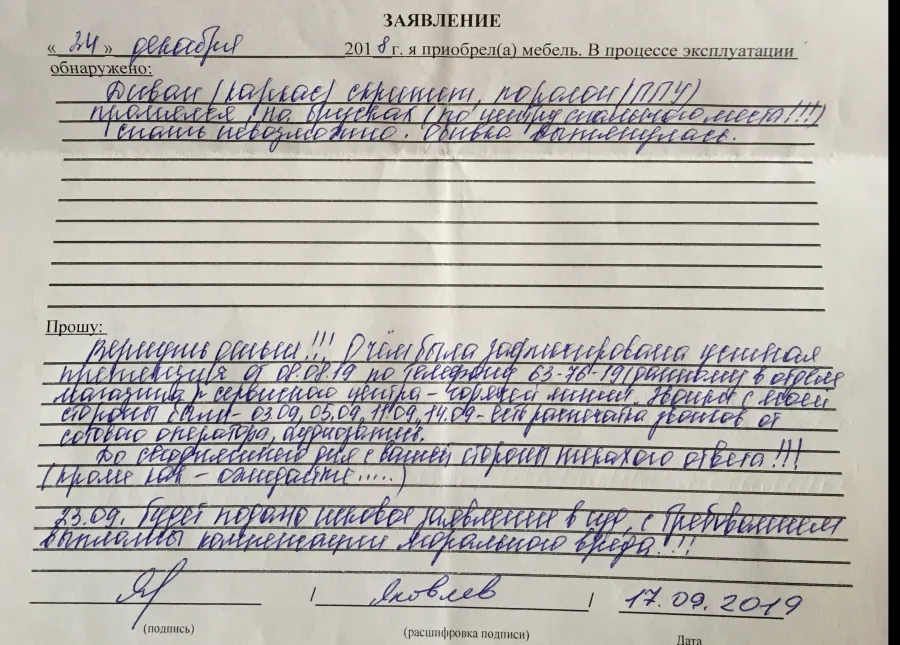 ЗАЯВЛЕНИЕ
« 24 » декабря 2018 г. я приобрел(а) мебель. В процессе эксплуатации
обнаружено:
Диван (каркас) скрипит, поролон (ППУ)
промялся, на брусках (по центру спального места!!!)
спать невозможно. Обивка вытянулась.
Прошу:
Вернуть деньги!!! О чём была зафиксирована устная
претензия от 08.08.19 по телефону 63-76-19 (данному в отделе
магазина) сервисного центра - горячей линии. Звонки с моей
стороны были - 03.09, 05.09, 11.09, 14.09 - есть распечатка звонков от
сотового оператора, аудиозапись.
До сегодняшнего дня с вашей стороны никакого ответа!!!
(кроме как - ожидайте.....)
23.09. будет подано исковое заявление в суд, с требованием
выплаты компенсации морального вреда!!!
/ Яковлев / 17.09.2019
(подпись) (расшифровка подписи) Дата